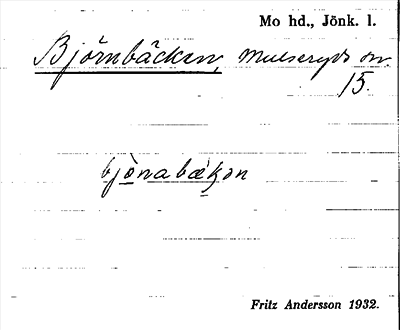 Mo hd., Jönk. l.
Björnbäcken, Mulseryds sn.
15.
bjònabæ̀kon
Fritz Andersson 1932.